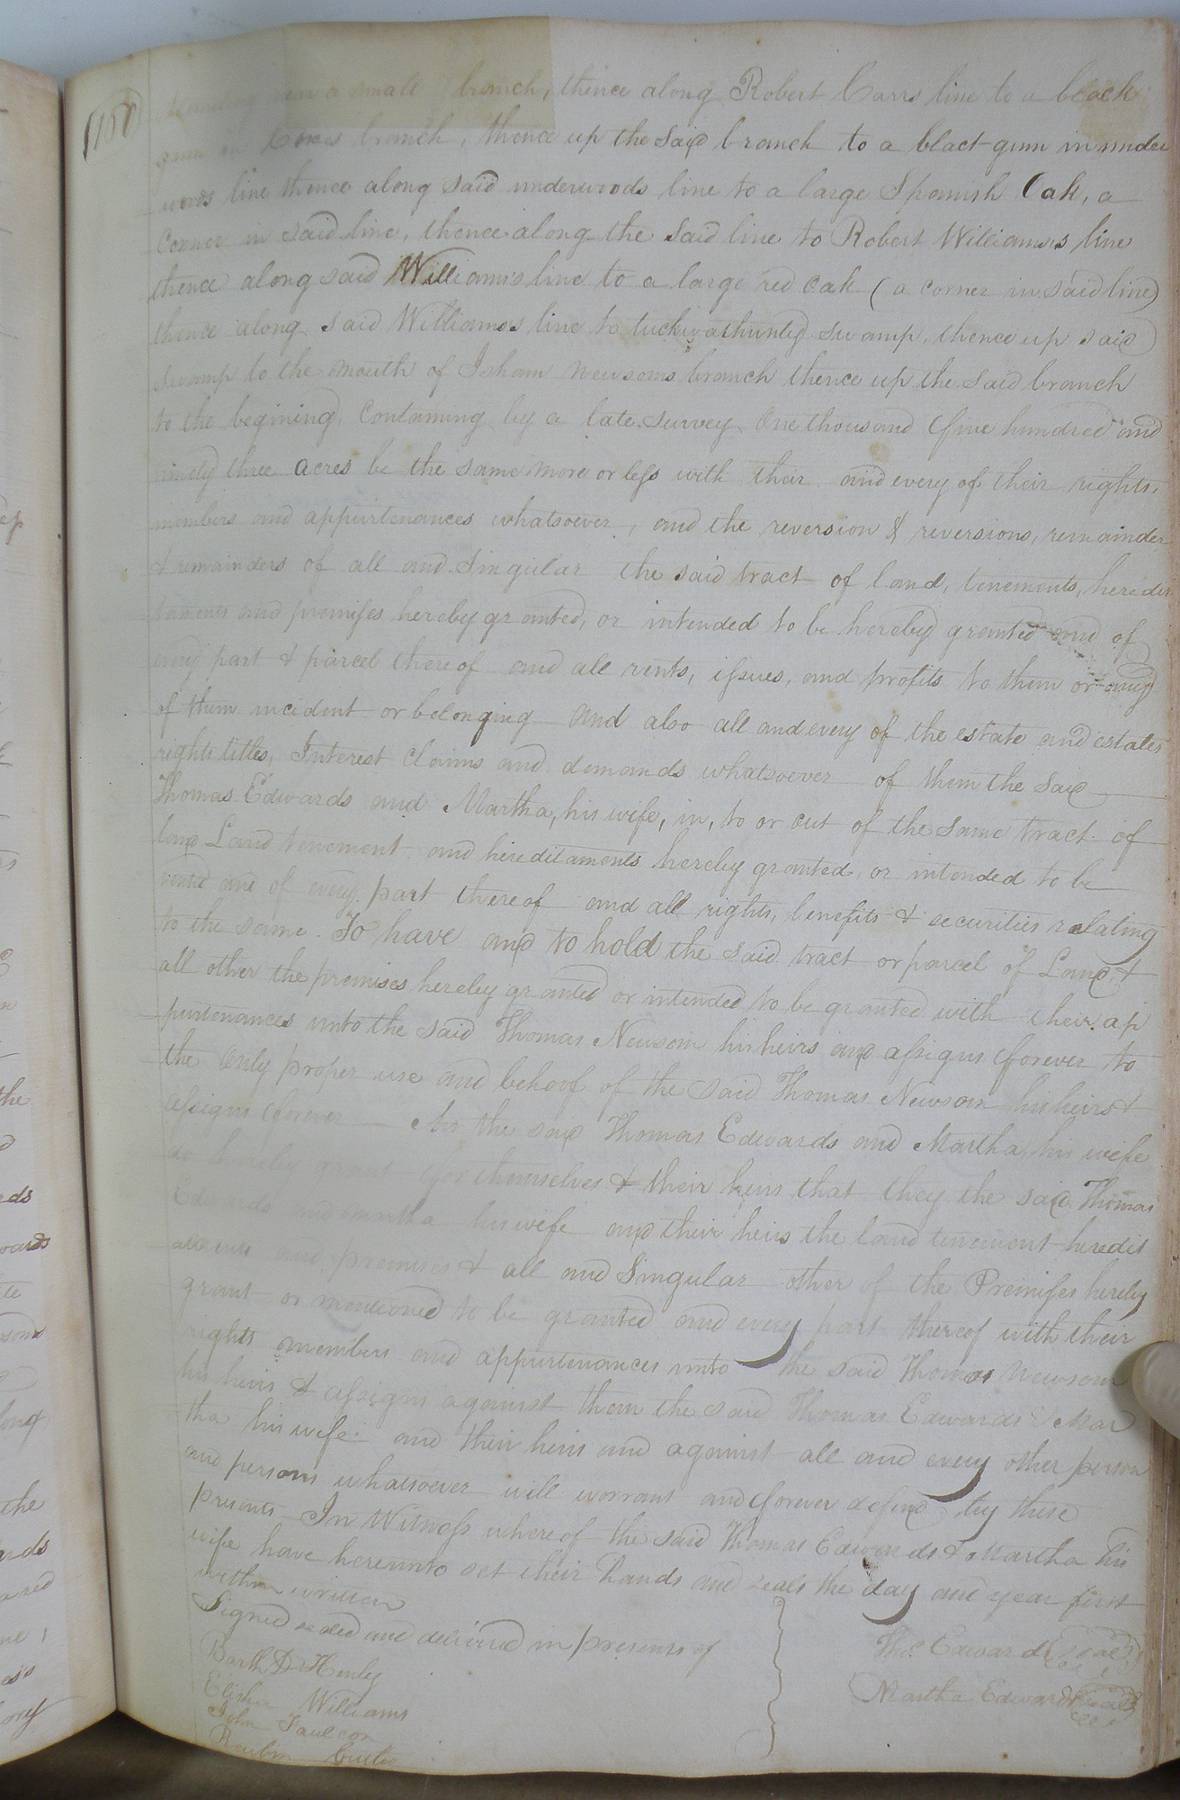 near a small branch, thence along Robert Carrs line to a black
gum in branch, thence up the said branch to a black gum in under
woods line thence along said underwoods line to a large Spanish Oak, a
Corner in said line, thence along the said line to Robert Williams's line
thence along said Williams's line to a large red Oak (a corner in said line)
thence along said Williams's line to swamp, thence up said
swamp to the mouth of Isham Newsoms branch thence up the said branch
to the begining, Containing by a late survey One thousand five hundred and
ninety three acres be the same more or less with their and every of their rights,
members and appurtenances whatsoever, and the reversion & reversions, remainder
& remainders of all and Singular the said tract of land, tenements, heredi
taments and premises hereby granted, or intended to be hereby granted and of
every part & parcel thereof and all rents, issues, and profits to them or any
of them incident or belonging and also all and every of the estate and estates
rights titles, Interest Claims and demands whatsoever of them the said
Thomas Edwards and Martha, his wife, in, to or out of the same tract of
land Land tenement and hereditaments hereby granted, or intended to be
and of every part thereof and all rights, benefits & securities relating
to the same. To have and to hold the said tract or parcel of Land, &
all other the premises hereby granted or intended to be granted with their ap
purtenances unto the said Thomas Newsom his heirs and assigns forever to
the Only proper use and behoof of the said Thomas Newsom his heirs &
assigns forever the said Thomas Edwards and Martha, his wife
do hereby grant for themselves & their heirs that they the said Thomas
Edwards and Martha his wife and their heirs the land tenement heredit
aments and premises & all and Singular other of the Premises hereby
grant or mentioned to be granted and every part thereof with their
rights members and appurtenances unto the said Thomas Newsom
his heirs & assigns against them the said Thomas Edwards & Mar
tha his wife and their heirs and against all and every other person
and persons whatsoever will warrant and forever defend by these
presents In Witness whereof the said Thomas Edwards & Martha his
wife have hereunto set their hands and seals the day and year first
within written
Signed sealed and delivered in presents of
Thos. Edwards (seal)
Barth D Henley
Martha Edwards (seal)
Elisha Williams
John
Reubin